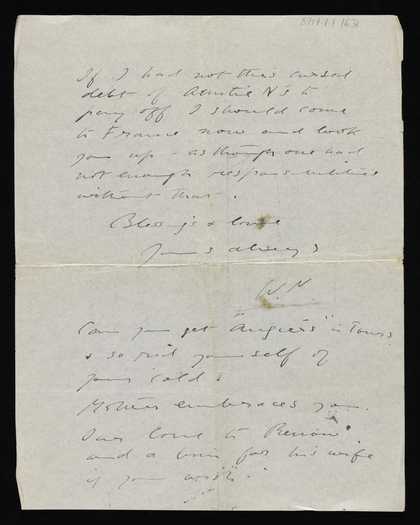 If I had not this cursed
debt of Auntie N's to
pay off I should come
to France now and look
you up – as though one had
not enough responsibilities
without that.
Blessings & love
Yours always
W.N.
Can you get "Angiers" in Tours
& so rid yourself of
your cold?
Mother embraces you.
Our love to
and a for his wife
if you wish.